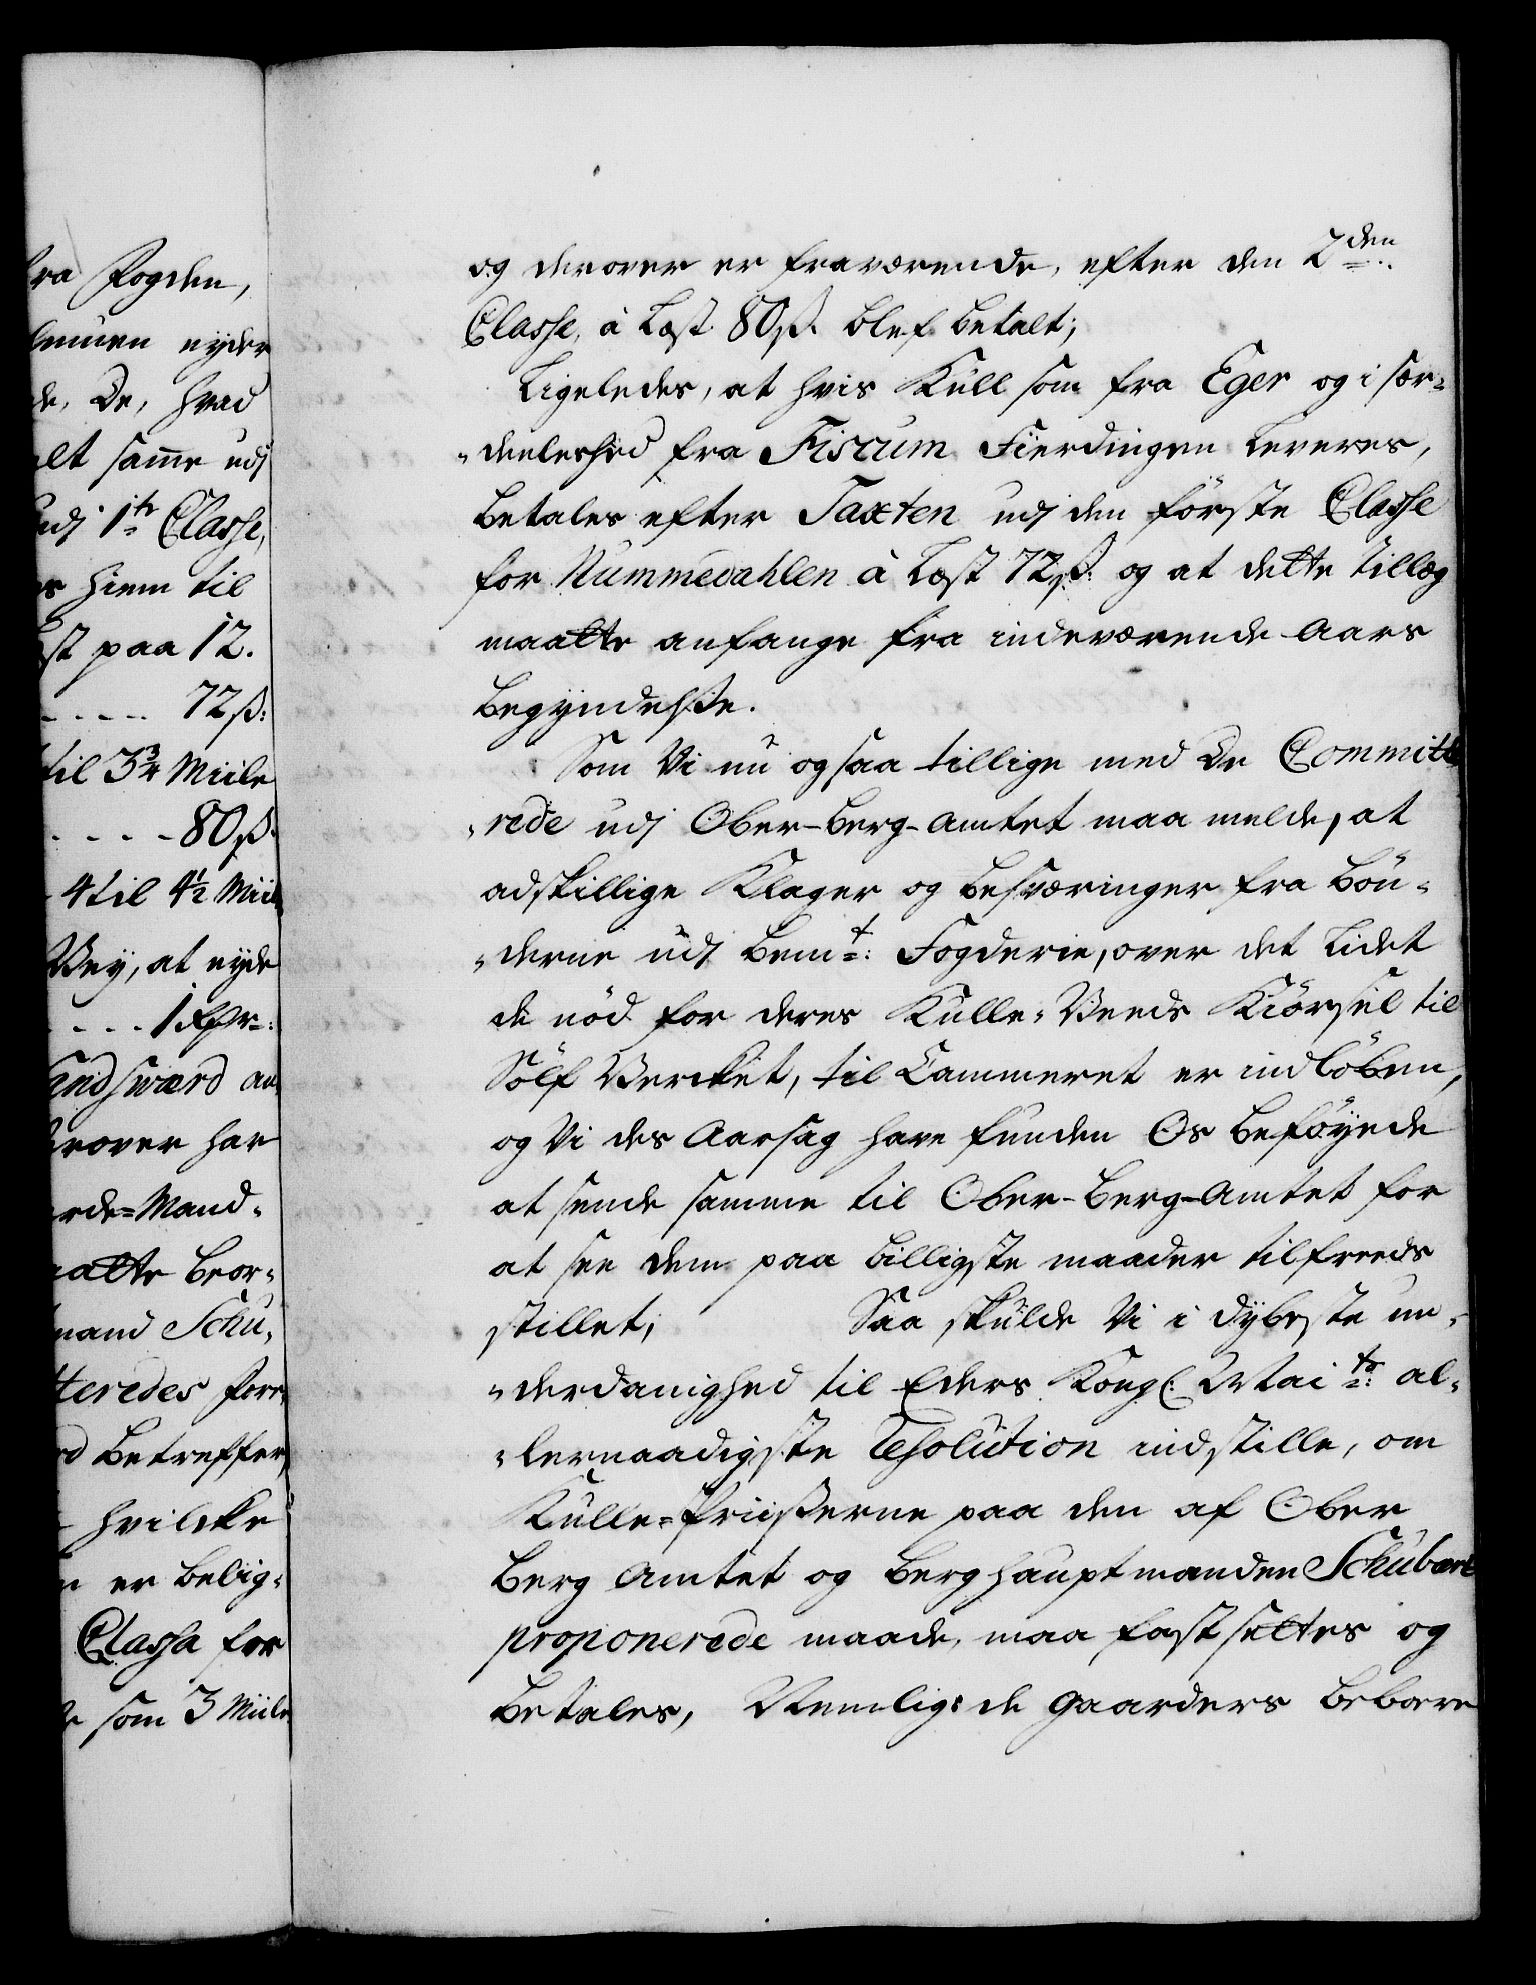 fra Fogden,
nyder
de, De, hvad
alt samme udj
udj 1te Classe,
hiem til
paa 12.
- - - - 72 ß:
til 3 3/4 Miile
- - - - 80 ß.
4 til 4 1/2 Miil
Vey, at nyde
- - - 1 Rdr:
Sandsværd an
erover har
rde-Mand-
aatte beor-
mand Schu-
teredes Forr
betreffer,
hvilcke
er belig-
Classa for
som 3 Miile
og derover er fraværende, efter den 2den
Classe, à Læst 80 ß. blef betalt;
Ligeledes, at hvis Kull som fra Eger og i sær-
-deeleshed fra Fiscum Fierdingen leveres,
betales efter Taxten udj den förste Classe
for Nummedahlen à Læst 72 ß: og at dette tillæg
maatte anfange fra indeværende Aars
begyndelße.
Som Vi nu ogsaa tillige med De Committe
-rede udj Ober-Berg-Amtet maa melde, at
adskillige Klager og besværinger fra bön-
-derne udj bemt: Fogderie, over det lidet
de nöd for deres Kulle-Veeds Kiörsel til
Sölf Vercket, til Cammeret er indlöben,
og Vi des Aarsag have funden Os beföyede
at sende samme til Ober-Berg-Amtet for
at see dem paa billigste maader tilfreeds
stillet; Saa skulde Vi i dybeste un-
-derdanighed til Eders Kongl: Maits: al-
-lernaadigste Resolution indstille, om
Kulle-Priißerne paa den af Ober
Berg Amtet og Berghauptmanden Schubart
proponerede maade, maa fastsættes og
betales, Nemlig: de Gaarders beboere